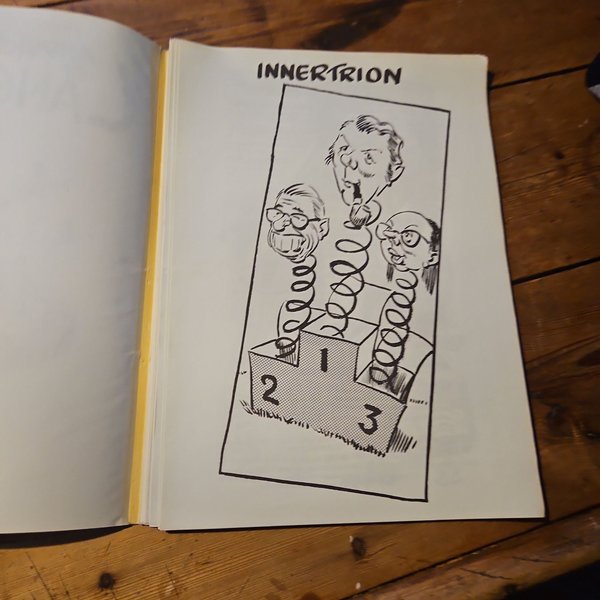 INNERTRION
1
2
3